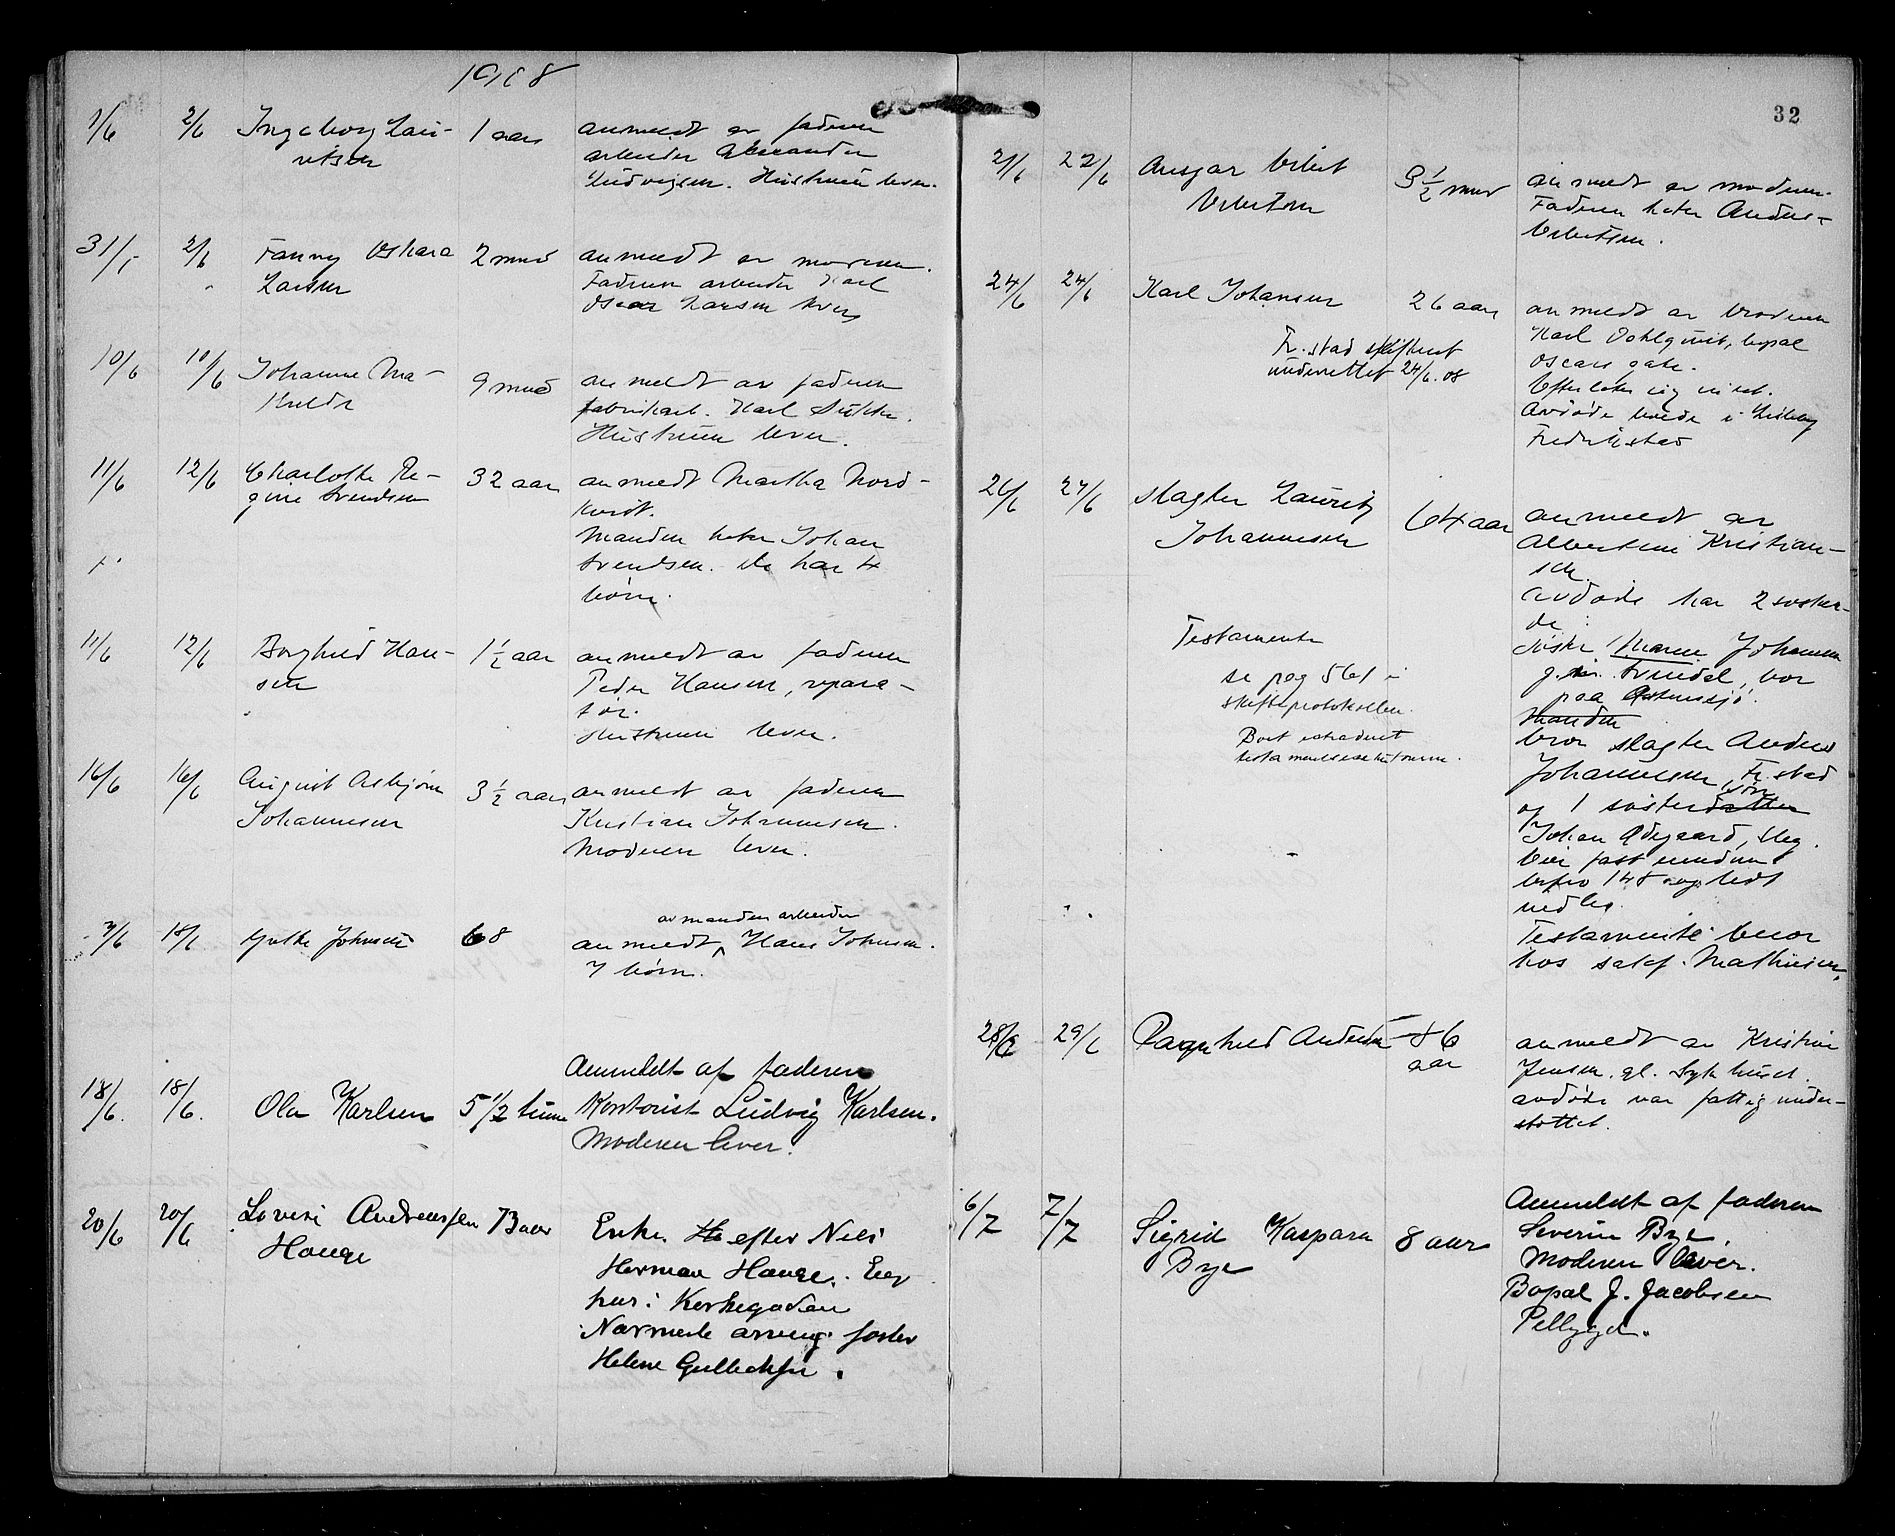 1908
1/6 2/6 Ingeborg Lau-
ritsen
1 aar
anmeldt av faderen
arbeider Alexander
Ludvigsen. Hustruen lever.
31/5 2/6 Fanny Oskara
Larsen
2 mnd
anmeldt av moren.
Faderen arbeider Karl
Oscar Larsen lever
10/6 10/6 Johanne Ma-
thilde
9 mnd
anmeldt av faderen
fabrikarb. Karl
Hustruen lever.
11/6 12/6 Charlotte Re-
gine Svendsen
32 aar
anmeldt Martha Nord-
kvist.
Manden heter Johan
Svendsen. De har 4
børn.
11/6 12/6 Borghild Han-
sen
1 1/2 aar
anmeldt av faderen
Peder Hansen, repara-
tør.
Hustruen lever.
16/6 16/6 August Asbjørn
Johannesen
3 1/2 aar
anmeldt av faderen
Kristian Johannesen.
Moderen lever.
18/6 Johnsen
68
av manden arbeider
anmeldt Hans Johnsen.
7 børn.
18/6. 18/6. Ola Karlsen
5 1/2 time
Anmeldt af faderen
Kontorist Ludvig Karlsen.
Moderen lever.
20/6 20/6 Lovise Andreassen
Hauge
Enke efter Nils
Herman Hauge. Eier
hus i Kirkegaden
Nærmeste arving: søster
Helene Gulliksen.
32
21/6 22/6 Ansgar
3 1/2 mnd
anmeldt av moderen.
Faderen heter Anders
24/6 24/6 Karl Johansen
26 aar
Fr.stad skifteret
underrettet 24/6.08
anmeldt av broderen
Karl Dahlquist, bopæl
Oscars gate.
Efterlater sig intet.
Avdøde boede i Lisleby
Fredrikstad
26/6 27/6 Slagter Lauritz
Johannesen
64 aar
Testamente
se pag 561 i
skifteprotokollen.
Boet extraderet
testamentseksekutorerne.
anmeldt av
Albertine Kristian-
sen.
Avdøde har 2 søsken-
de:
søster Maren Johannesen
g. m. Svendsen, bor
paa
Manden
bror slagter Anders
Johannesen, Fr.stad
og 1 søsterdatter
søn
Johan Ødegaard, Sleg.
Eier fast eiendom
brfno 148 og løst
indbo.
Testamente beror
hos sakf. Mathiesen.
28/6 29/6 Ragnhild Andersen
86
aar
anmeldt av Kristine
Jensen, gl. Sykehuset.
avdøde var fattigunder-
støttet.
6/7 7/7 Sigrid Kaspara
Bye
8 aar
Anmeldt af faderen
Severin Bye.
Moderen lever.
Bopæl J. Jacobsen
Pellygd.